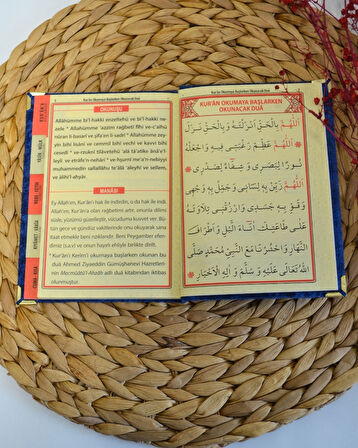 Kur'ân Okumaya Başlarken Okunacak Duâ
OKUNUŞU
Allâhümme bi'l-hakkı enzeltehû ve bi'l-hakkı ne-
zele * Allâhümme 'azzım rağbetî fîhi ve-c'alhü
nûran li-basarî ve şifâ'en li-sadrî * Allâhümme zey-
yin bihî lisânî ve cemmil bihî vechî ve kavvi bihî
cesedî * ve-rzuknî tilâvetehû 'alâ tâ'atike ânâ'e'l-
leyli ve etrâfe'n-nehâri * ve-hşurnî me'a'n-nebiyyi
muhammedin sallallâhu te'âlâ 'aleyhi ve sellem,
ve âlihi'l-ahyâr.
MANÂSI
Ey Allah'ım, Kur'ân'ı hak ile indirdin, o da hak ile indi.
Ey Allah'ım, Kur'ân'a olan rağbetimi artır, onunla dilimi
süsle, yüzümü güzelleştir, vücudumu kuvvet ver. Bü-
tün gece ve gündüz vakitlerinde onu okuyarak sana
itaat etmekle beni rızıklandır. Beni Peygamber efen-
dimiz (s.a.v) ve onun hayırlı ehliyle birlikte dirilt.
* Kur'ân'ı Kerîm'i okumaya başlarken okunan bu
duâ Ahmed Ziyaeddin Gümüşhânevî Hazretleri-
nin Mecmûâtü'l-Ahzâb adlı duâ kitabından iktibas
olunmuştur.
Kur'ân Okumaya Başlarken Okunacak Duâ
KUR'ÂN OKUMAYA BAŞLARKEN
OKUNACAK DUÂ
اَللّٰهُمَّ بِالْحَقِّ اَنْزَلْتَهُ وَبِالْحَقِّ نَزَلَ
اَللّٰهُمَّ عَظِّمْ رَغْبَتِى فِيهِ وَاجْعَلْهُ
نُورًا لِبَصَرِى وَشِفَاءً لِصَدْرِى
اَللّٰهُمَّ زَيِّنْ بِهِ لِسَانِى وَجَمِّلْ بِهِ وَجْهِى
وَقَوِّ بِهِ جَسَدِى وَارْزُقْنِى تِلَاوَتَهُ
عَلٰى طَاعَتِكَ اٰنَاءَ الَّيْلِ وَاَطْرَافَ
النَّهَارِ وَاحْشُرْنِى مَعَ النَّبِىِّ مُحَمَّدٍ صَلَّى
اللّٰهُ تَعَالٰى عَلَيْهِ وَسَلَّمَ وَاٰلِهِ الْاَخْيَارِ